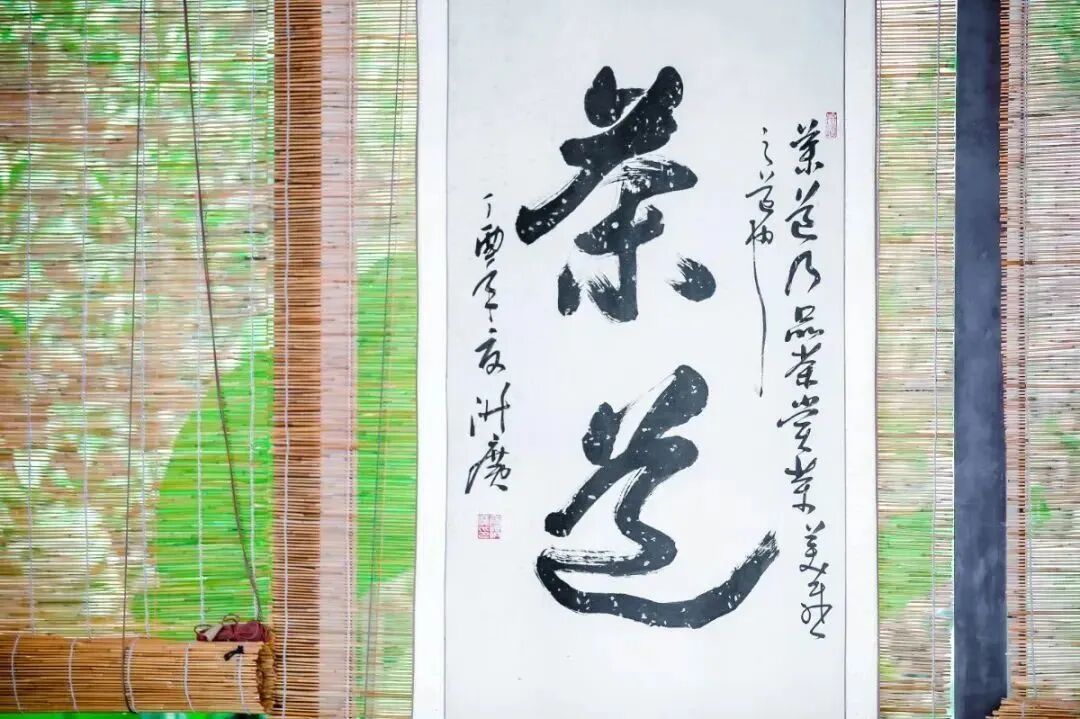 茶道乃品茶尝茶美感
之道也
茶道
丁酉年夏